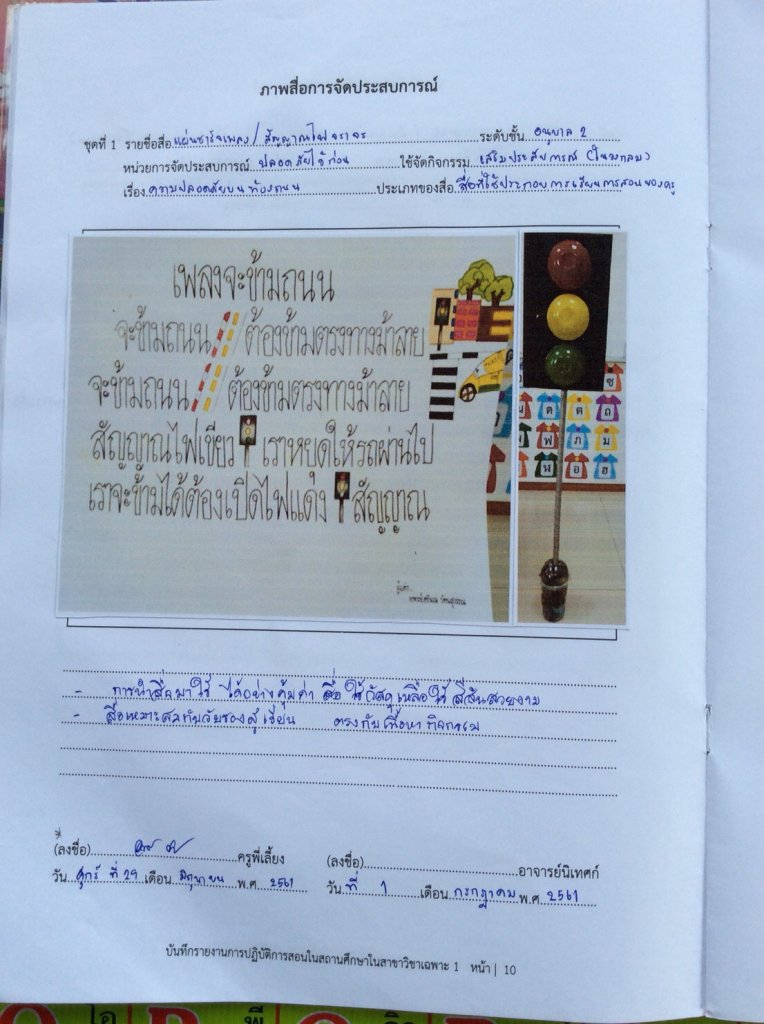 ภาพสื่อการจัดประสบการณ์
ชุดที่ 1 รายชื่อสื่อ แผ่นชาร์จเพลง/สัญญาณไฟจราจร ระดับชั้น อนุบาล 2
หน่วยการจัดประสบการณ์ ปลอดภัยไว้ก่อน ใช้จัดกิจกรรม เสริมประสบการณ์ (ในวงกลม)
เรื่อง ความปลอดภัยบนท้องถนน ประเภทของสื่อ สื่อที่ใช้ประกอบการเรียนการสอนของครู
เพลงจะข้ามถนน
จะข้ามถนน ต้องข้ามตรงทางม้าลาย
จะข้ามถนน ต้องข้ามตรงทางม้าลาย
สัญญาณไฟเขียว เราหยุดให้รถผ่านไป
เราจะข้ามได้ต้องเปิดไฟแดง สัญญาณ
ซ
ด ต ถ
ฟ ภ ม
ฬ อ ฮ
- การนำสื่อมาใช้ ได้อย่างคุ้มค่า สื่อใช้วัสดุเหลือใช้ สีสันสวยงาม
- สื่อเหมาะสมกับวัยของผู้เรียน ตรงกับเนื้อหา กิจกรรม
(ลงชื่อ) ครูพี่เลี้ยง (ลงชื่อ) อาจารย์นิเทศก์
วัน ศุกร์ ที่ 29 เดือน มิถุนายน พ.ศ. 2561 วัน ที่ 1 เดือน กรกฎาคม พ.ศ. 2561
บันทึกรายงานการปฏิบัติการสอนในสถานศึกษาในสาขาวิชาเฉพาะ 1 หน้า | 10